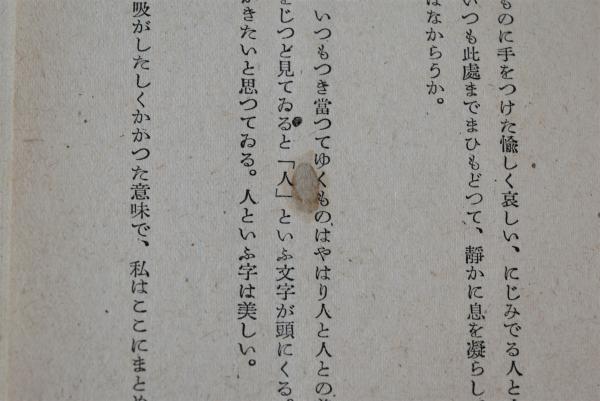 ものに手をつけた愉しく哀しい、にじみでる人と
いつも此處までまひもどつて、靜かに息を凝らし
はなからうか。
いつもつき當つてゆくものはやはり人と人との
をじつと見てゐると「人」といふ文字が頭にくる。
がきたいと思つてゐる。人といふ字は美しい。
吸がしたしくかかつた意味で、私はここにまとめ